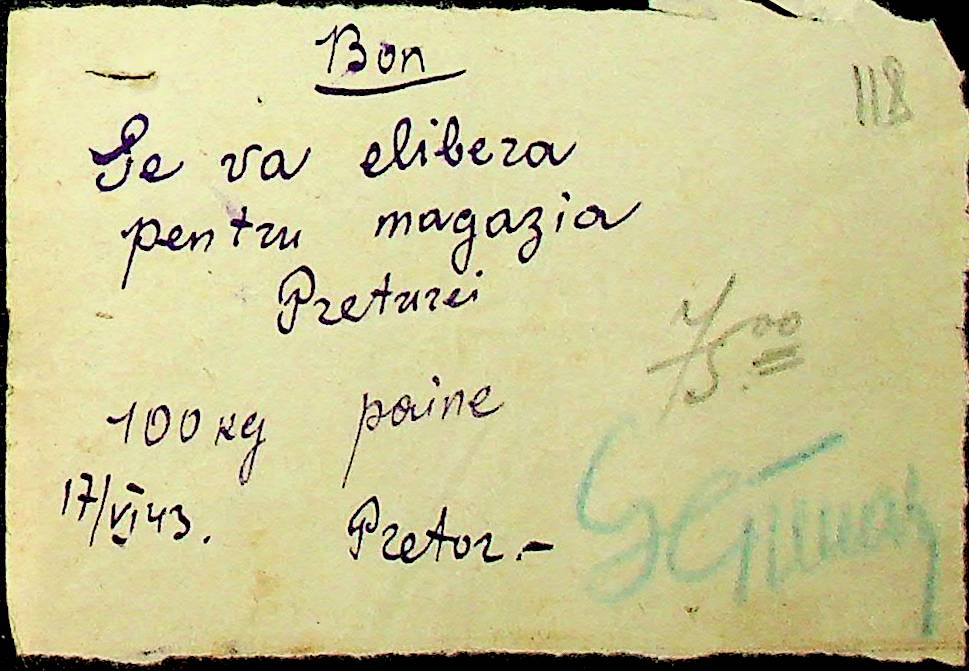 Bon
118
Se va elibera
pentru magazia
Preturei
75.00
100 kg paine
17/VI 43.
Pretor.-